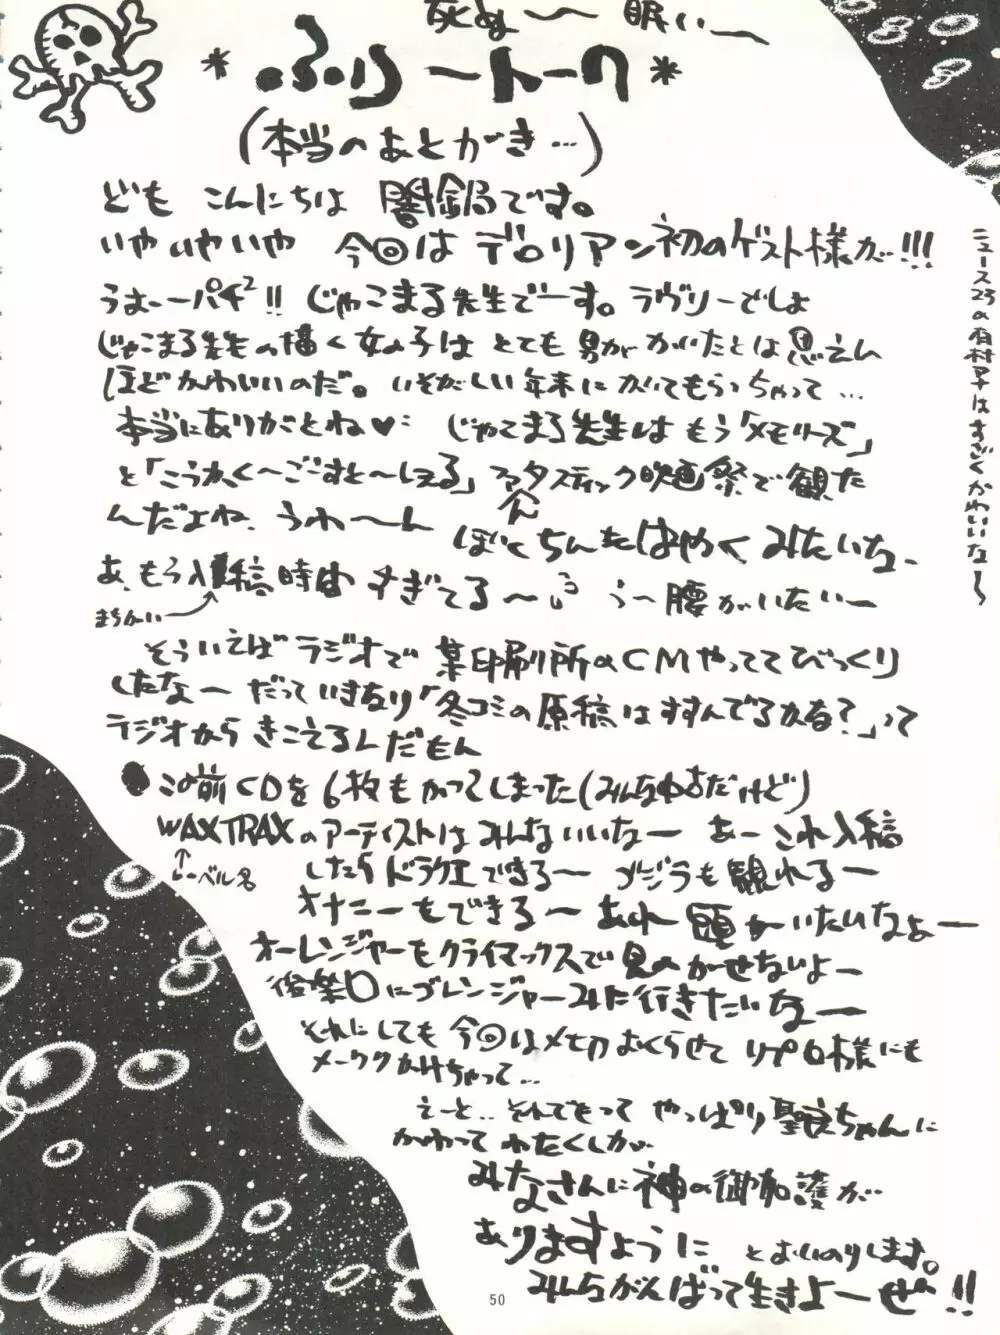 死ぬ〜 眠い〜
*ふりートーク*
(本当のあとがき…)
ども こんにちは 闇鍋です。
いやいやいや 今回は デロリアン初のゲスト様が!!!
うぉーーパチ²!! じゃこまる先生でーす。ラヴリーでしょ
じゃこまる先生の描く女の子は とても 男が かいたとは思えん
ほどかわいいのだ。いそがしい年末に かいてもらっちゃって…
本当にありがとね♥ じゃこまる先生は もう「メモリーズ」
と「こうかく〜ごーすと〜しぇる」ファンタスティック映画祭で観た
んだよね、うわ〜〜ん ぼくちんも はやく みたいな、
あ、もう入稿時間 すぎてる〜 う〜腰がいたいー
まちがい→
そういえば ラジオで 某印刷所のCMやっててびっくり
したなー だっていきなり「冬コミの原稿はすすんでるかな?」って
ラジオから きこえるしだもん
●この前CDを6枚もかってしまった(みんな中古だけど)
WAXTRAXのアーティストは みんないいなー あー これ入稿
↑レーベル名
したら ドラクエできる〜 ガメラも観れる〜
オナニーもできる〜 あれ 頭がいたいなぁー
オーレンジャーもクライマックスで見のがせないよー
後楽〇にゴレンジャーみに行きたいなー
それにしても 今回はメチャおくらせて リプロ様にも
メーワクかけちゃって…
えーと.. そんでもって やっぱり 聖良ちゃんに
かわって わたくしが
みなさんに神の御加護が
ありますように とおいのりします。
みんながんばって生きよーぜ!!
ニュース23の有村アナはすごくかわいいな〜
50